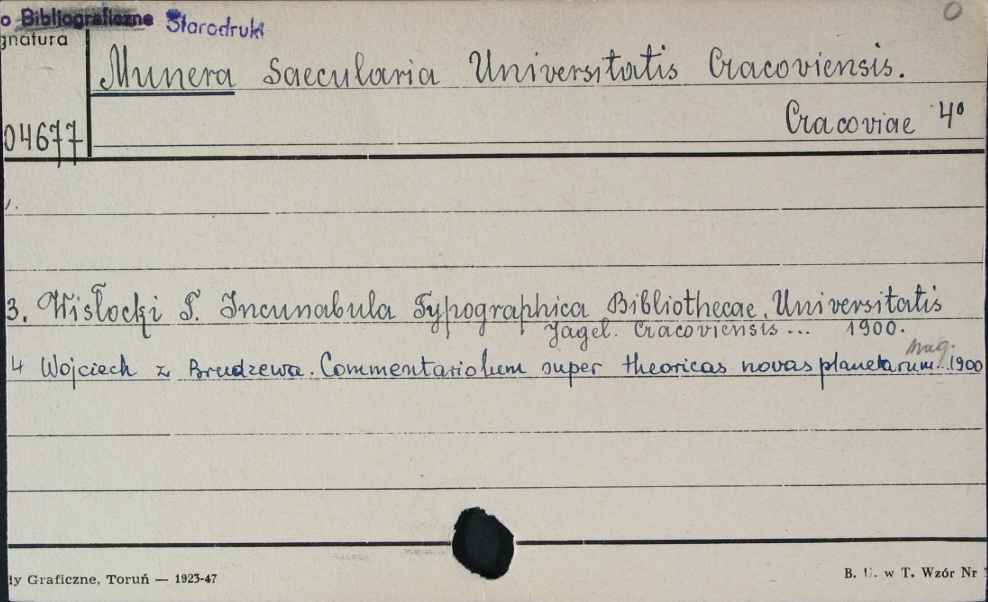 o Bibliograficzne Starodruki
gnatura
Munera Saecularia Universitatis Cracoviensis.
Cracoviae 4º
04677
3. Wisłocki T. Incunabula Typographica Bibliothecae Universitatis
Jagel. Cracoviensis ... 1900.
mag.
4 Wojciech z Brudzewa. Commentariolum super theoricas novas planetarum... 1900
ły Graficzne, Toruń — 1923-47
B. U. w T. Wzór Nr